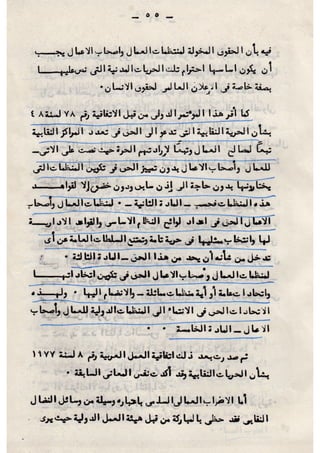 ـ ٥٥ ـ
فيه بأن الحقوق المخولة لمنظمات العمال وأصحاب الاعمال يجـــب
أن يكون اساسها احترام تلك الحريات المدنية التى نص عليهـــا
بصفة خاصة فى الإعلان العالمى لحقوق الانسان ٠
كما أقر هذا المؤتمر الدولى من قبل الاتفاقية رقم ٨٧ لسنة ٤٨
بشأن الحرية النقابية التى تدعو الى الحق فى تعدد المراكز النقابية
تبعا لمصالح العمال وتبعا لإرادتهم الحرة حيث نصت على الاتى ـ
للعمال وأصحاب الاعمال بدون تمييز الحق فى تكوين المنظمات التى
يختارونها بدون حاجة الى إذن سابق ودون خضوع إلا لقواعـــد
هذه المنظمات فحسب ـ المادة الثانية ـ ٠ لمنظمات العمال وأصحاب
الاعمال الحق فى اعداد لوائح النظام الاساسى والقواعد الاداريـــة
لها وانتخاب ممثليها فى حرية تامة وتمتنع السلطات العامة عن أى
تدخل من شأنه أن يحد من هذا الحق ـ المادة الثالثة ٠
لمنظمات العمال وأصحاب الاعمال الحق فى تكوين اتحاداتهـــا
واتحادات عامة أو أية منظمات مماثلة ـ والانضمام اليها ٠ ولهـــذه
الاتحادات الحق فى الانتماء الى المنظمات الدولية للعمال وأصحاب
الاعمال ـ المادة الخامسة ٠ ٠
ثم صدرت بعد ذلك اتفاقية العمل العربية رقم ٨ لسنة ١٩٧٧
بشأن الحريات النقابية وقد أكدت نفس المعانى السابقة ٠
أما الاضراب العمالى السلمى باعتباره وسيلة من وسائل النضال
النقابى فقد حظى بالمباركة من قبل هيئة العمل الدولية حيث يرى